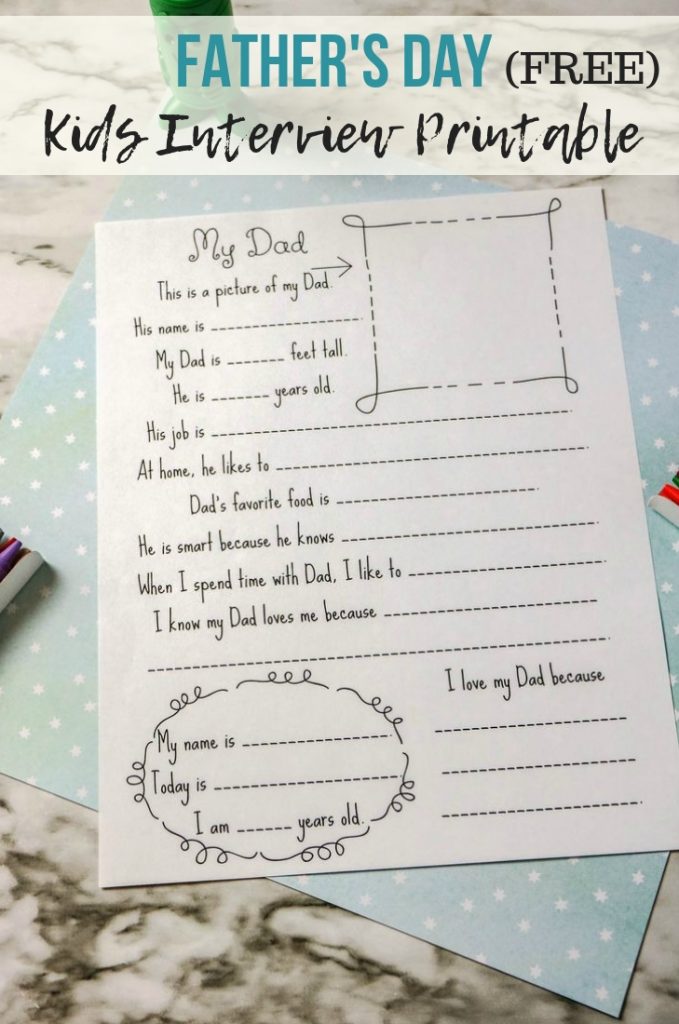 FATHER'S DAY (FREE)
Kids Interview Printable
My Dad
This is a picture of my Dad.
His name is
My Dad is feet tall.
He is years old.
His job is
At home, he likes to
Dad's favorite food is
He is smart because he knows
When I spend time with Dad, I like to
I know my Dad loves me because
My name is
Today is
I am years old.
I love my Dad because